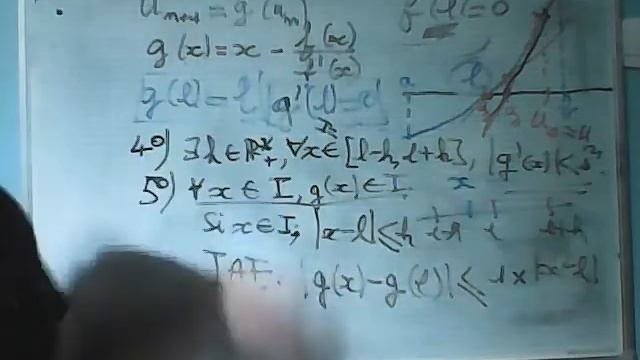 u_{n+1} = g(u_n)
f(l) = 0
g(x) = x - f(x)/f'(x)
g(l) = l
4°) ∃ h ∈ ℝ*₊, ∀x ∈ [l-h, l+h], |g'(x)| <
5°) ∀ x ∈ I, g(x) ∈ I.
Si x ∈ I, |x-l| ≤ h
l-h l l+h
|g(x)-g(l)| ≤ 1 × |x-l|